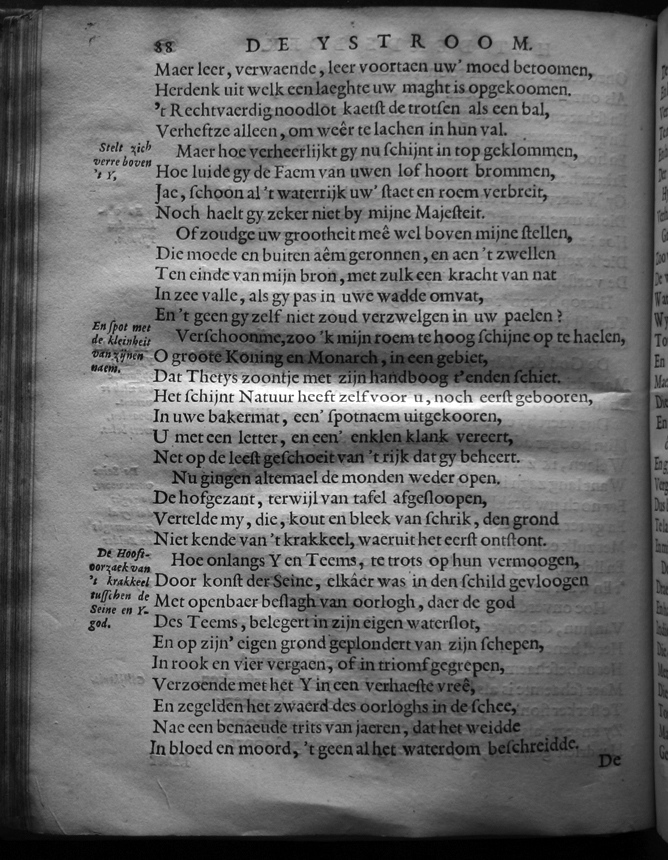 88 DE YSTROOM.
Maer leer, verwaende, leer voortaen uw' moed betoomen,
Herdenk uit welk een laeghte uw maght is opgekoomen.
't Rechtvaerdig noodlot kaetſt de trotſen als een bal,
Verheftze alleen, om weêr te lachen in hun val.
Stelt zich verre boven 't Y,
Maer hoe verheerlijkt gy nu ſchijnt in top geklommen,
Hoe luide gy de Faem van uwen lof hoort brommen,
Jae, ſchoon al 't waterrijk uw' ſtaet en roem verbreit,
Noch haelt gy zeker niet by mijne Majeſteit.
Of zoudge uw grootheit meê wel boven mijne ſtellen,
Die moede en buiten aêm geronnen, en aen 't zwellen
Ten einde van mijn bron, met zulk een kracht van nat
In zee valle, als gy pas in uwe wadde omvat,
En 't geen gy zelf niet zoud verzwelgen in uw paelen?
En ſpot met de kleinheit van zijnen naem.
Verſchoonme, zoo 'k mijn roem te hoog ſchijne op te haelen,
O groote Koning en Monarch, in een gebiet,
Dat Thetys zoontje met zijn handboog t'enden ſchiet.
Het ſchijnt Natuur heeft zelf voor u, noch eerſt gebooren,
In uwe bakermat, een' ſpotnaem uitgekooren,
U met een letter, en een' enklen klank vereert,
Net op de leeſt geſchoeit van 't rijk dat gy beheert.
Nu gingen altemael de monden weder open.
De hofgezant, terwijl van tafel afgeſloopen,
Vertelde my, die, kout en bleek van ſchrik, den grond
Niet kende van 't krakkeel, waeruit het eerſt ontſtont.
De Hooft-oorzaek van 't krakkeel tuſſchen de Seine en Y-god.
Hoe onlangs Y en Teems, te trots op hun vermoogen,
Door konſt der Seine, elkâer was in den ſchild gevloogen
Met openbaer beſlagh van oorlogh, daer de god
Des Teems, belegert in zijn eigen waterſlot,
En op zijn' eigen grond geplondert van zijn ſchepen,
In rook en vier vergaen, of in triomf gegrepen,
Verzoende met het Y in een verhaeſte vreê,
En zegelden het zwaerd des oorloghs in de ſchee,
Nae een benaeude trits van jaeren, dat het weidde
In bloed en moord, 't geen al het waterdom beſchreidde.
De